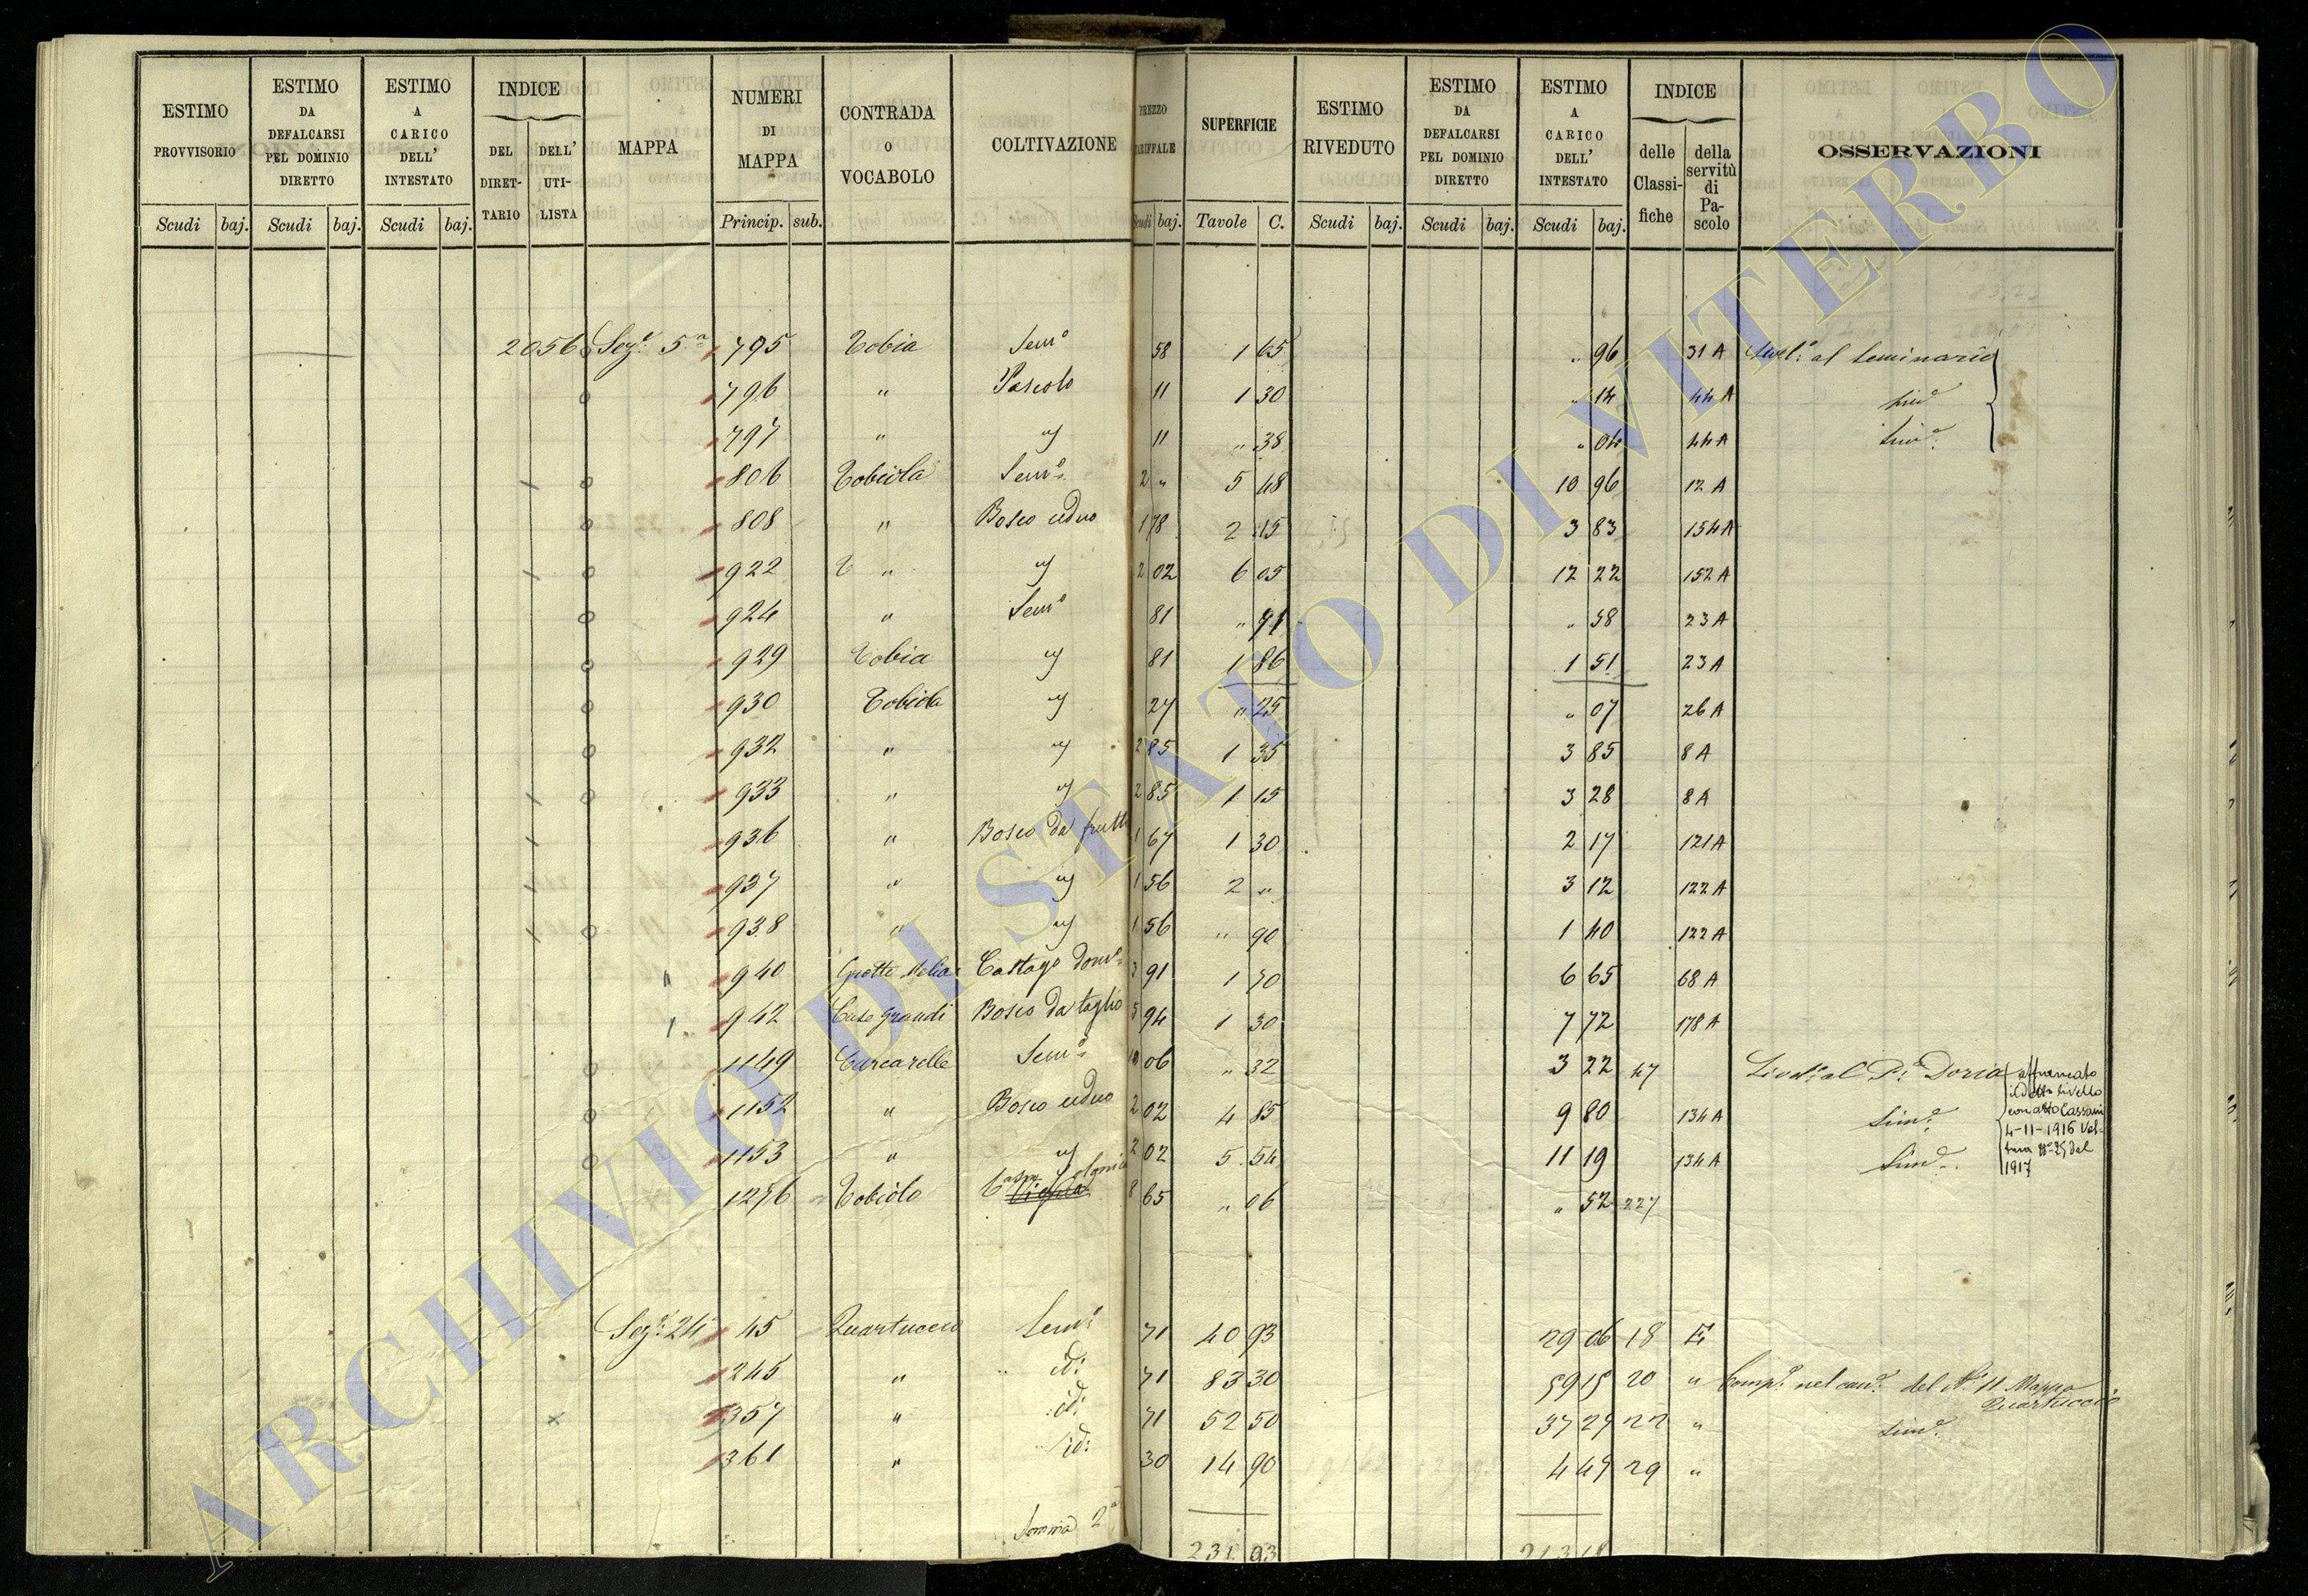 ESTIMO PROVVISORIO | ESTIMO DA DEFALCARSI PEL DOMINIO DIRETTO | ESTIMO A CARICO DELL' INTESTATO | INDICE DEL DIRETTARIO | DELL' UTILISTA | MAPPA | NUMERI DI MAPPA | CONTRADA O VOCABOLO | COLTIVAZIONE | PREZZO TARIFFALE | SUPERFICIE | ESTIMO RIVEDUTO | ESTIMO DA DEFALCARSI PEL DOMINIO DIRETTO | ESTIMO A CARICO DELL' INTESTATO | INDICE delle Classifiche | della servitù di Pascolo | OSSERVAZIONI
Scudi baj. Scudi baj. Scudi baj. Princip. sub. Scudi baj. Tavole C. Scudi baj. Scudi baj. Scudi baj.
2056 Sez.e 5a 795 Tobia Sem.o 58 1 65 " 96 31 A Livel.o al Seminario
796 " Pascolo 11 1 30 " 14 44 A sim.e
797 " " 11 " 38 " 04 44 A sim.e
806 Tobiola Sem.o 2 " 5 48 10 96 12 A
808 " Bosco ceduo 1 78 2 15 3 83 154 A
922 " " 2 02 6 05 12 22 152 A
924 " Sem.o 81 " 58 23 A
929 Tobia " 81 1 86 1 51 23 A
930 Tobiola " 27 " 25 " 07 26 A
932 " " 2 85 1 35 3 85 8 A
933 " " 2 85 1 15 3 28 8 A
936 " Bosco da frutto 1 67 1 30 2 17 121 A
937 " " 1 56 2 " 3 12 122 A
938 " " 1 56 " 90 1 40 122 A
940 Grotte Castag.o dom.o 3 91 1 70 6 65 68 A
942 Case grandi Bosco da taglio 5 94 1 30 7 72 178 A
1149 Carcarelle Sem.o 10 06 " 32 3 22 47 Livel.o al P.e Doria
1152 " Bosco ceduo 2 02 4 85 9 80 134 A sim.e
1153 " " 2 02 5 54 11 19 134 A sim.e
affrancato
il detto livello
con atto Cassani
4-11-1916 Vol-
tura No 25 del
1917
1276 Tobiola Casa Colonica 8 65 " 06 " 52 227
Sez.e 24 45 Quartuccio Sem.o 71 40 93 29 06 18 E
245 " id: 71 83 30 59 15 20 " Comp.o nel del N.o 11 Mappa
Quartuccio
357 " id: 71 52 50 37 27 22 " sim.e
361 " id: 30 14 90 4 47 29 "
Somma 2a 231 93 213 18
ARCHIVIO DI STATO DI VITERBO